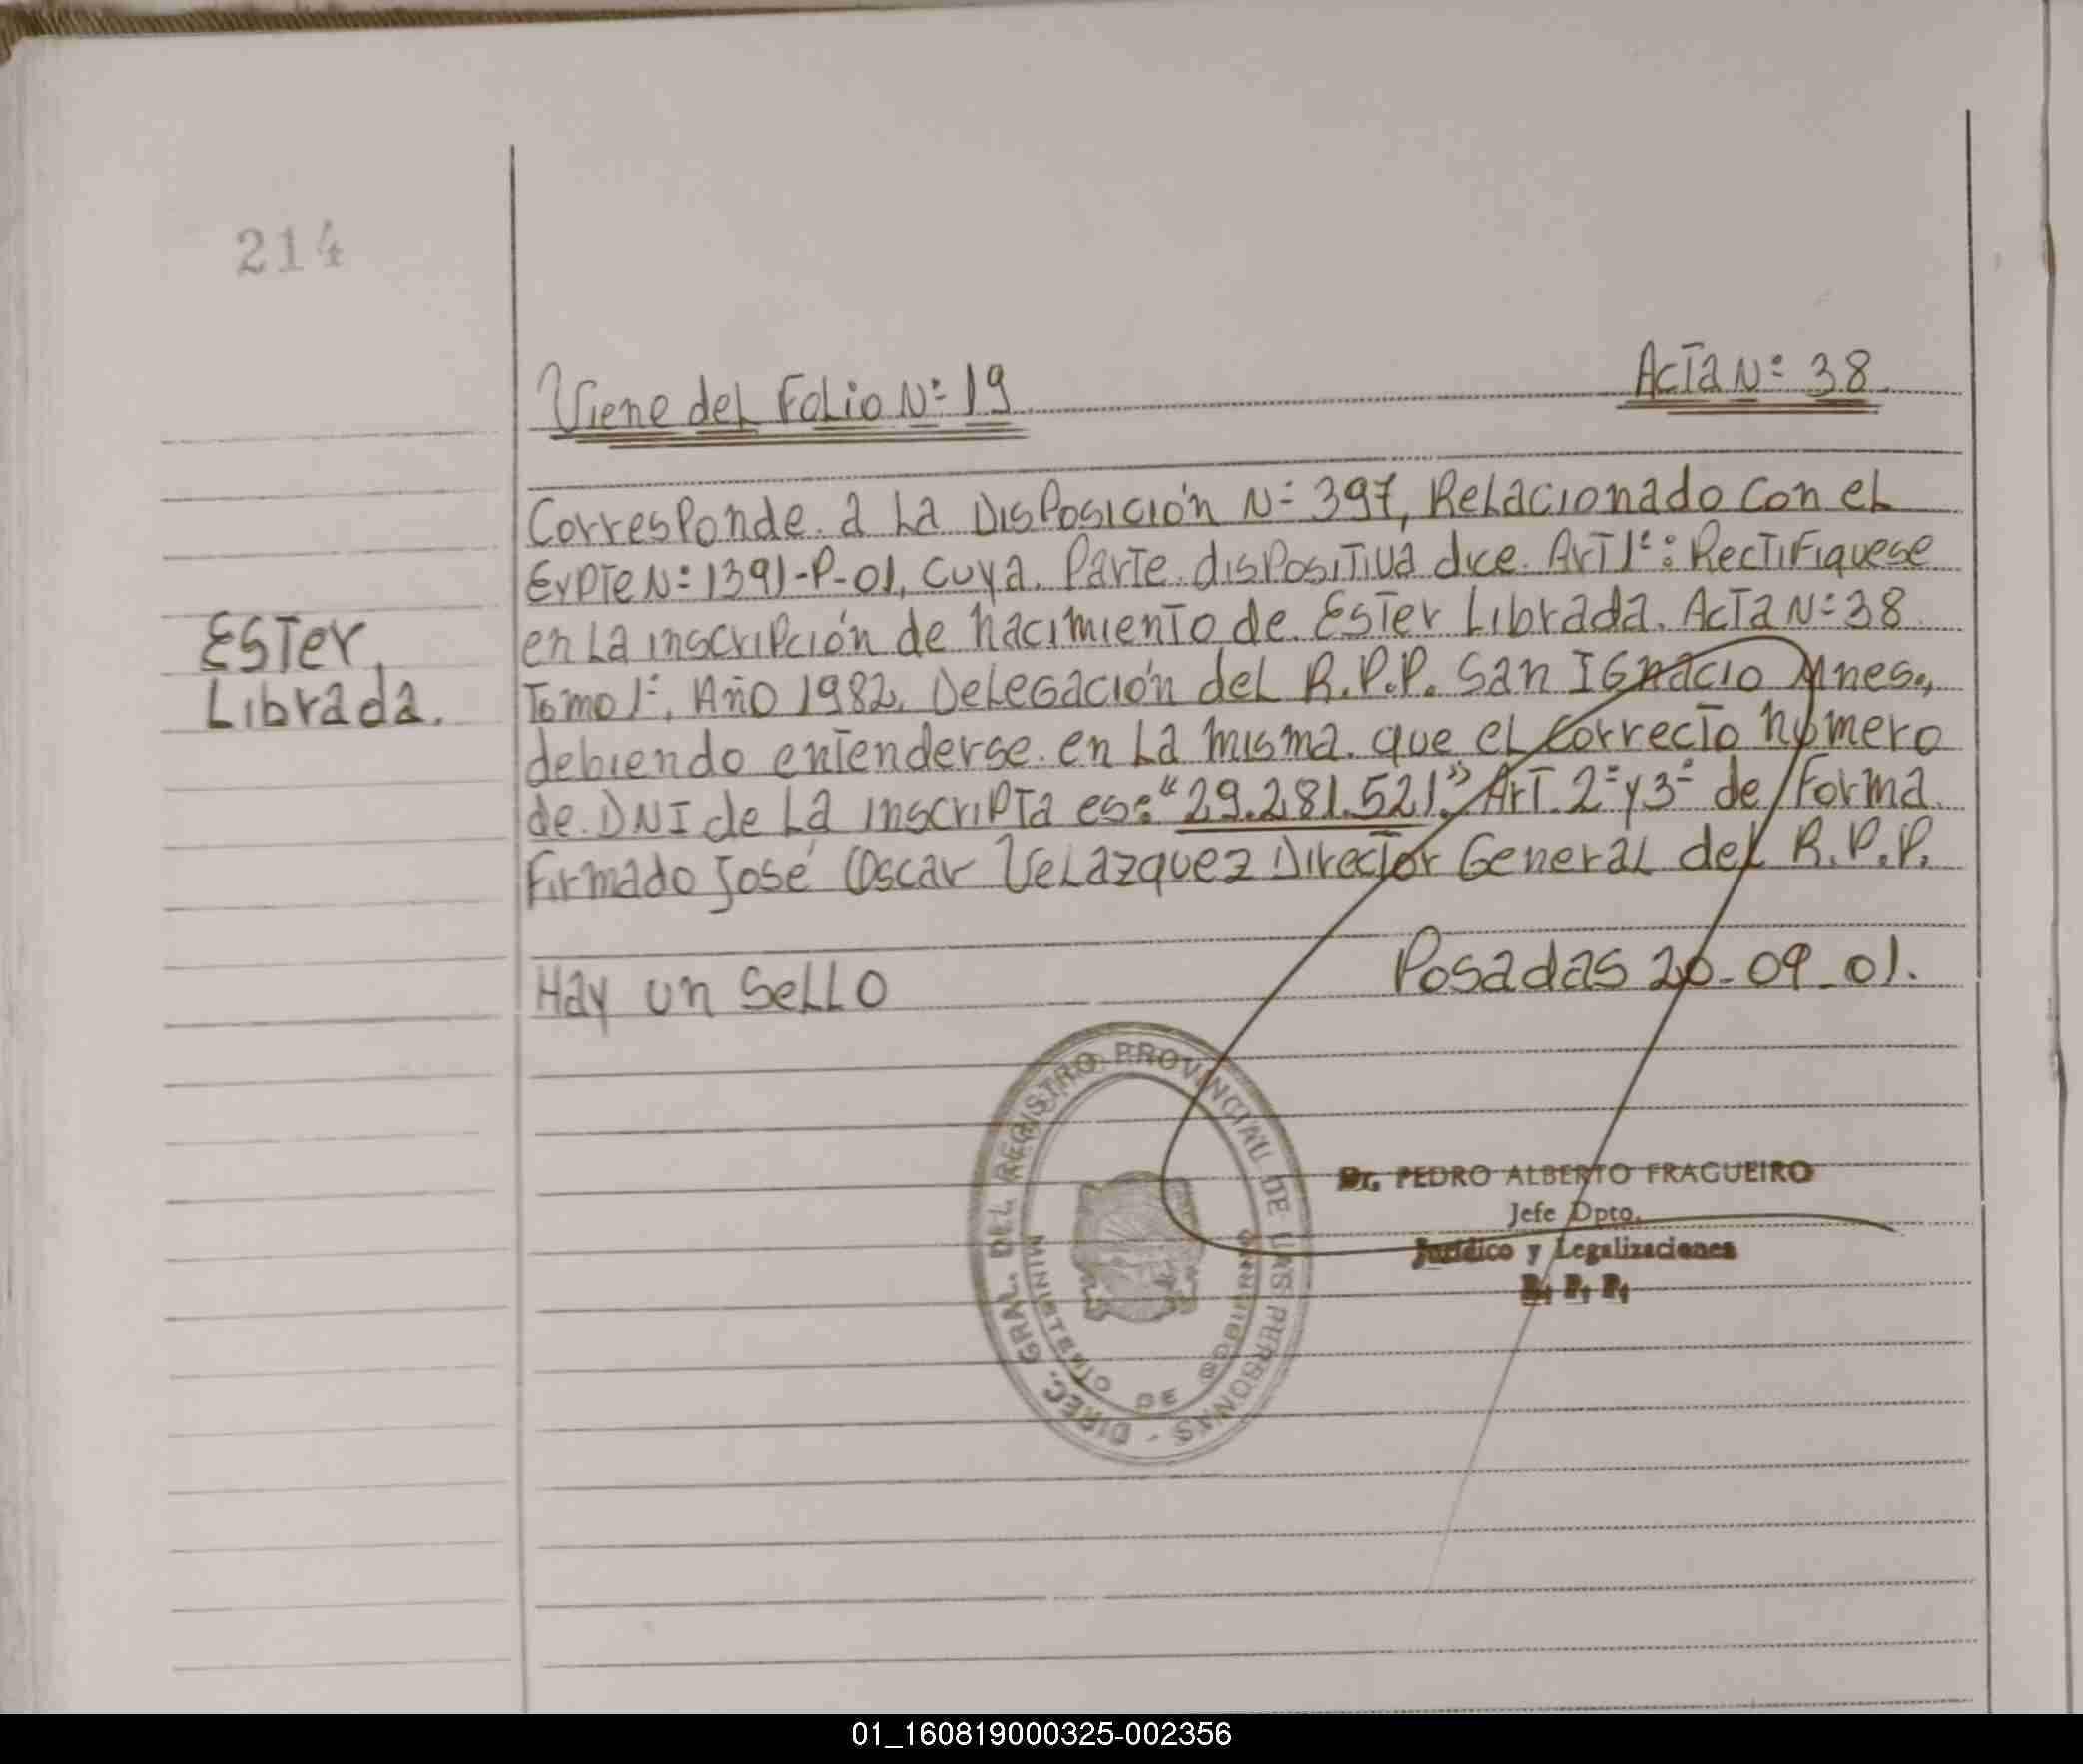 214
Viene del Folio Nº 19
Acta Nº 38
Corresponde a la Disposición Nº 397, Relacionado con el
Expte Nº 1391-P-01, cuya Parte dispositiva dice. Art 1º: Rectifiquese
en La inscripción de nacimiento de Ester Librada. Acta Nº 38
Tomo 1º, Año 1982. Delegación del R.P.P. San Ignacio Mnes.,
debiendo entenderse en La misma que el correcto número
de DNI de La inscripta es: "29.281.521". Art. 2º y 3º de Forma
Firmado José Oscar Velazquez Director General del R.P.P.
Ester
Librada.
Hay un Sello
Posadas 20-09-01.
DIREC. GRAL. DEL REGISTRO PROVINCIAL DE LAS PERSONAS -
MINISTERIO DE GOBIERNO
Dr. PEDRO ALBERTO FRAGUEIRO
Jefe Dpto.
Jurídico y Legalizaciones
R. P. P.
01_160819000325-002356